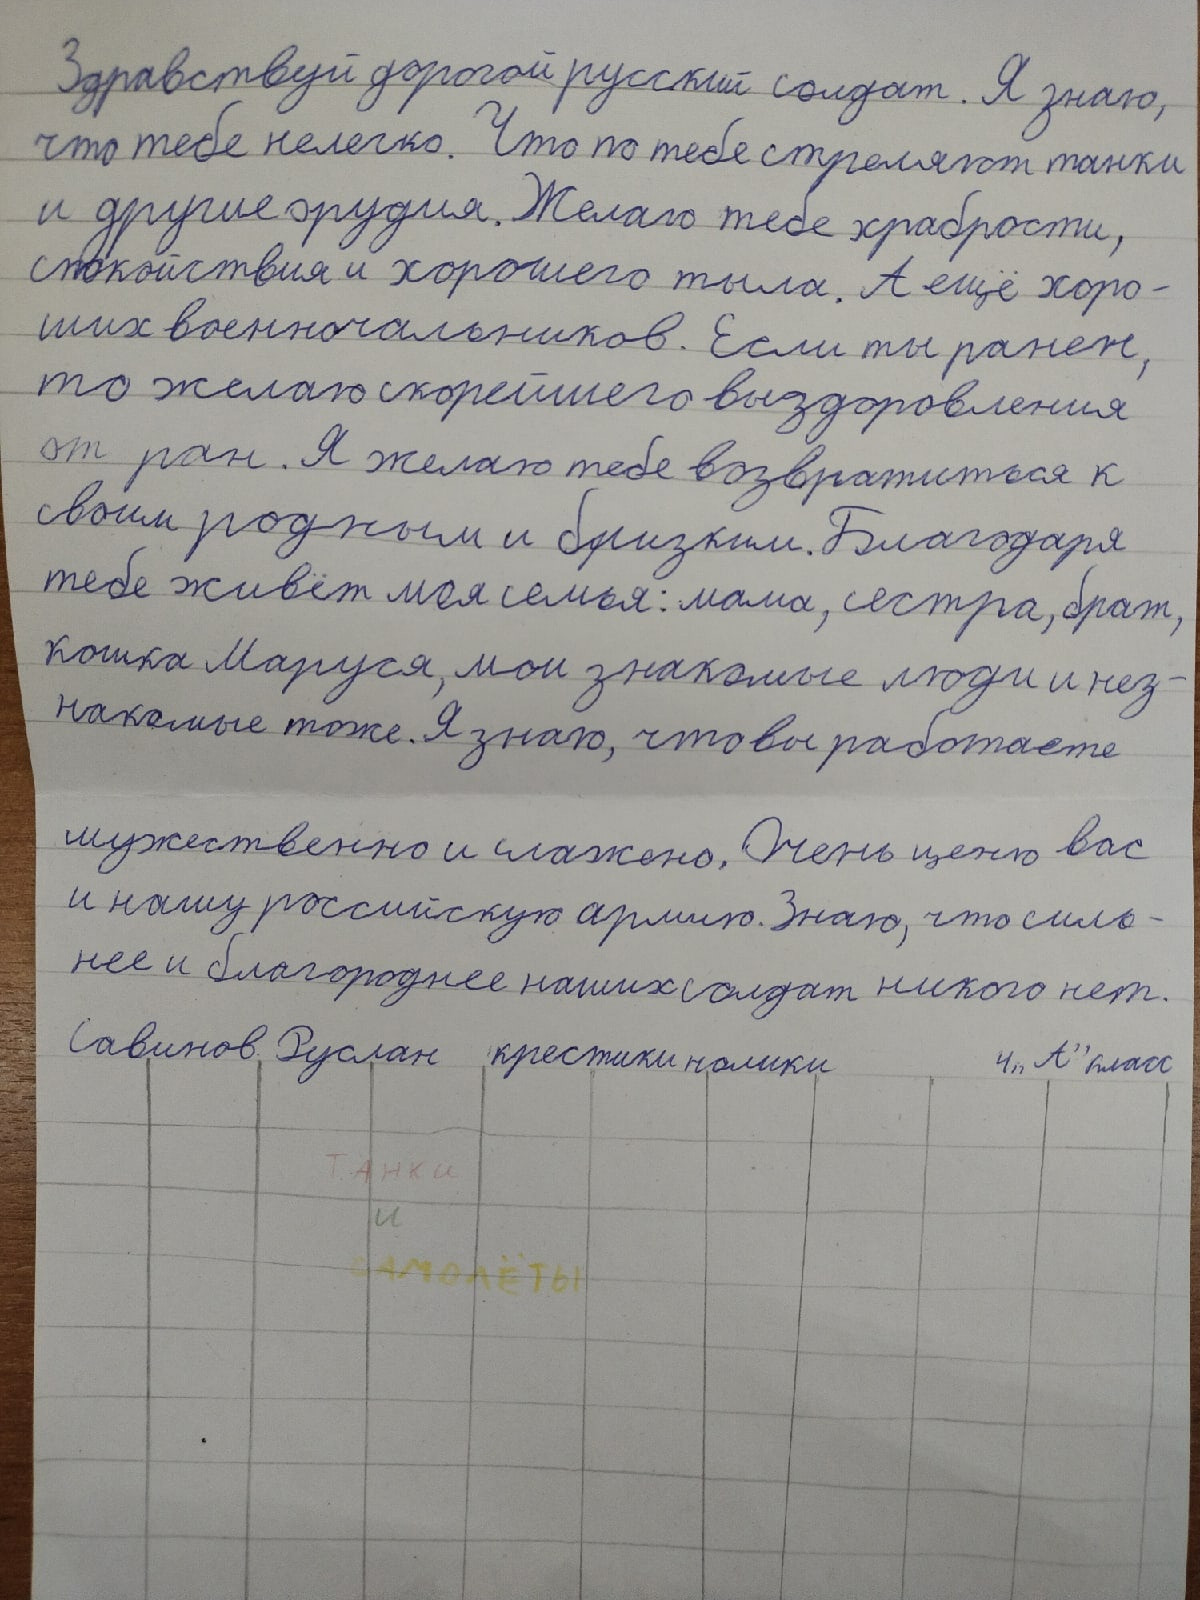 Здравствуй дорогой русский солдат. Я знаю,
что тебе нелегко. Что по тебе стреляют танки
и другие орудия. Желаю тебе храбрости,
спокойствия и хорошего тыла. А ещё хоро-
ших военночальников. Если ты ранен,
то желаю скорейшего выздоровления
от ран. Я желаю тебе возвратиться к
своим родным и близким. Благодаря
тебе живёт моя семья: мама, сестра, брат,
кошка Маруся, мои знакомые люди и нез-
накомые тоже. Я знаю, что вы работаете
мужественно и слажено. Очень ценю вас
и нашу российскую армию. Знаю, что силь-
нее и благороднее наших солдат никого нет.
Савинов Руслан крестики нолики 4 „А" класс
ТАНКИ
И
САМОЛЁТЫ